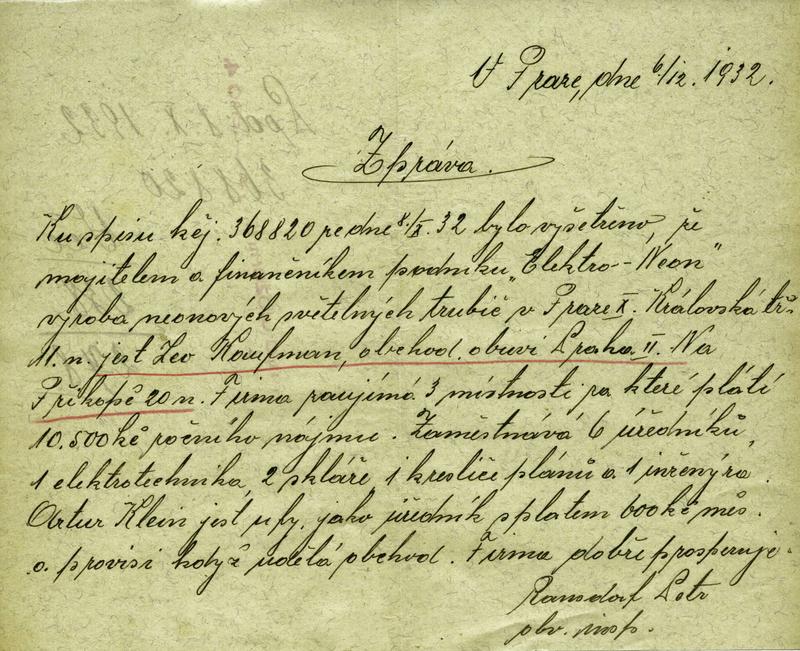 V Praze, dne 6/12. 1932.
Zpráva.
Ku spisu kčj. 368820 ze dne 8./X. 32 bylo vyšetřeno, že
majitelem a finančníkem podniku „Elektro-Neon"
výroba neonových světelných trubic v Praze X. Královská tř.
11. n. jest Leo Kaufman, obchod. obuví Praha II. Na
Příkopě 20 n. Firma zaujímá 3 místnosti za které platí
10.500 kč ročního nájmu. Zaměstnává 6 úředníků,
1 elektrotechnika, 2 skláře, 1 kresliče plánů a 1 inženýra.
Artur Klein jest u fy. jako úředník s platem 600 kč měs.
a provisi když udělá obchod. Firma dobře prosperuje.
Ransdorf Petr
obv. insp.